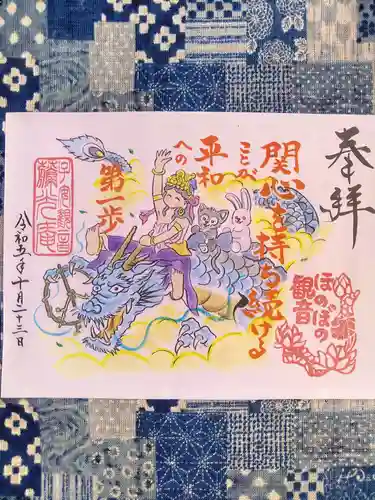 奉拝
関心を持ち続ける
ことが
平和
への
第一歩
ほのぼの
観音
子安観音
令和五年十月二十三日